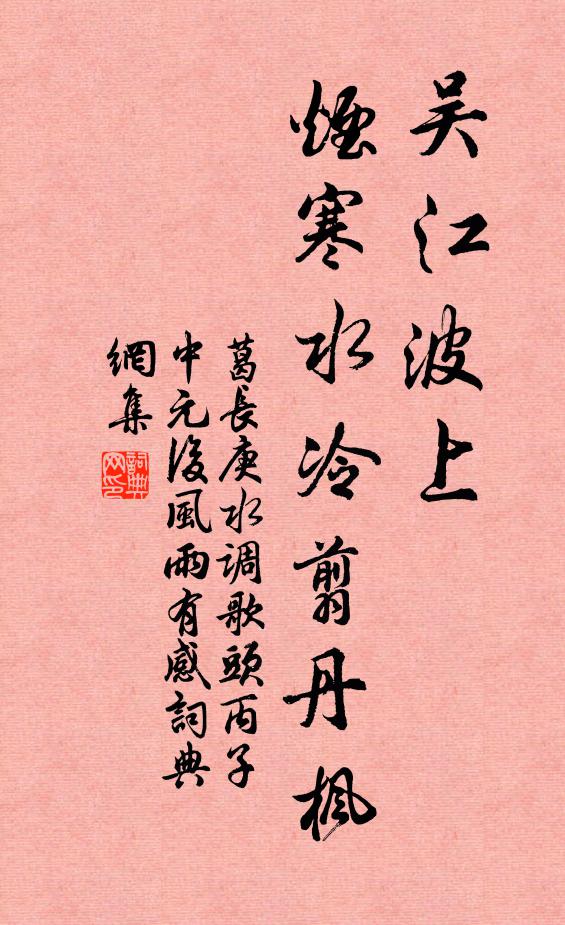 吴江波上
煙寒水冷翦丹楓
葛長庚水调歌頭丙子
中元後風雨有感詞典
網集
詞典
网印